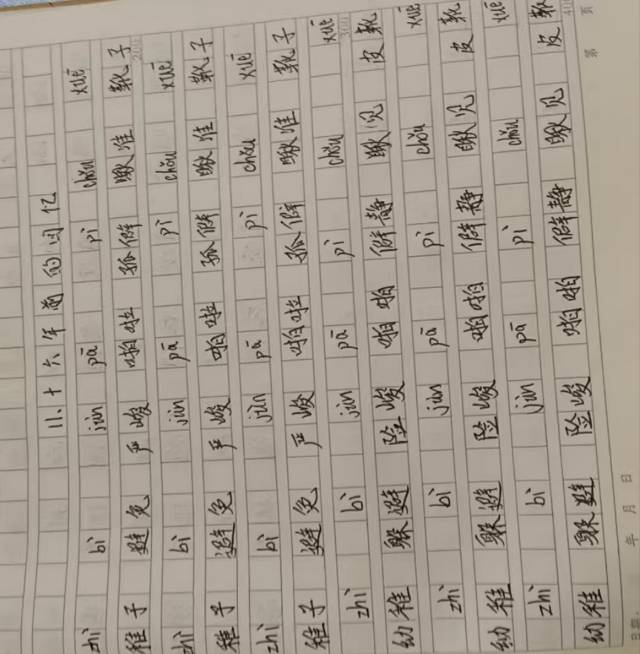 11、十六年前的回忆
zhì bì jùn pā pì chǒu xuē
稚子 避免 严峻 啪啦 孤僻 瞅准 靴子
zhì bì jùn pā pì chǒu xuē
稚子 避免 严峻 啪啦 孤僻 瞅准 靴子
zhì bì jùn pā pì chǒu xuē
稚子 避免 严峻 啪啦 孤僻 瞅准 靴子
zhì bì jùn pā pì chǒu xuē
幼稚 躲避 险峻 啪啪 僻静 瞅见 皮靴
zhì bì jùn pā pì chǒu xuē
幼稚 躲避 险峻 啪啪 僻静 瞅见 皮靴
zhì bì jùn pā pì chǒu xuē
幼稚 躲避 险峻 啪啪 僻静 瞅见 皮靴
年 月 日 第 页